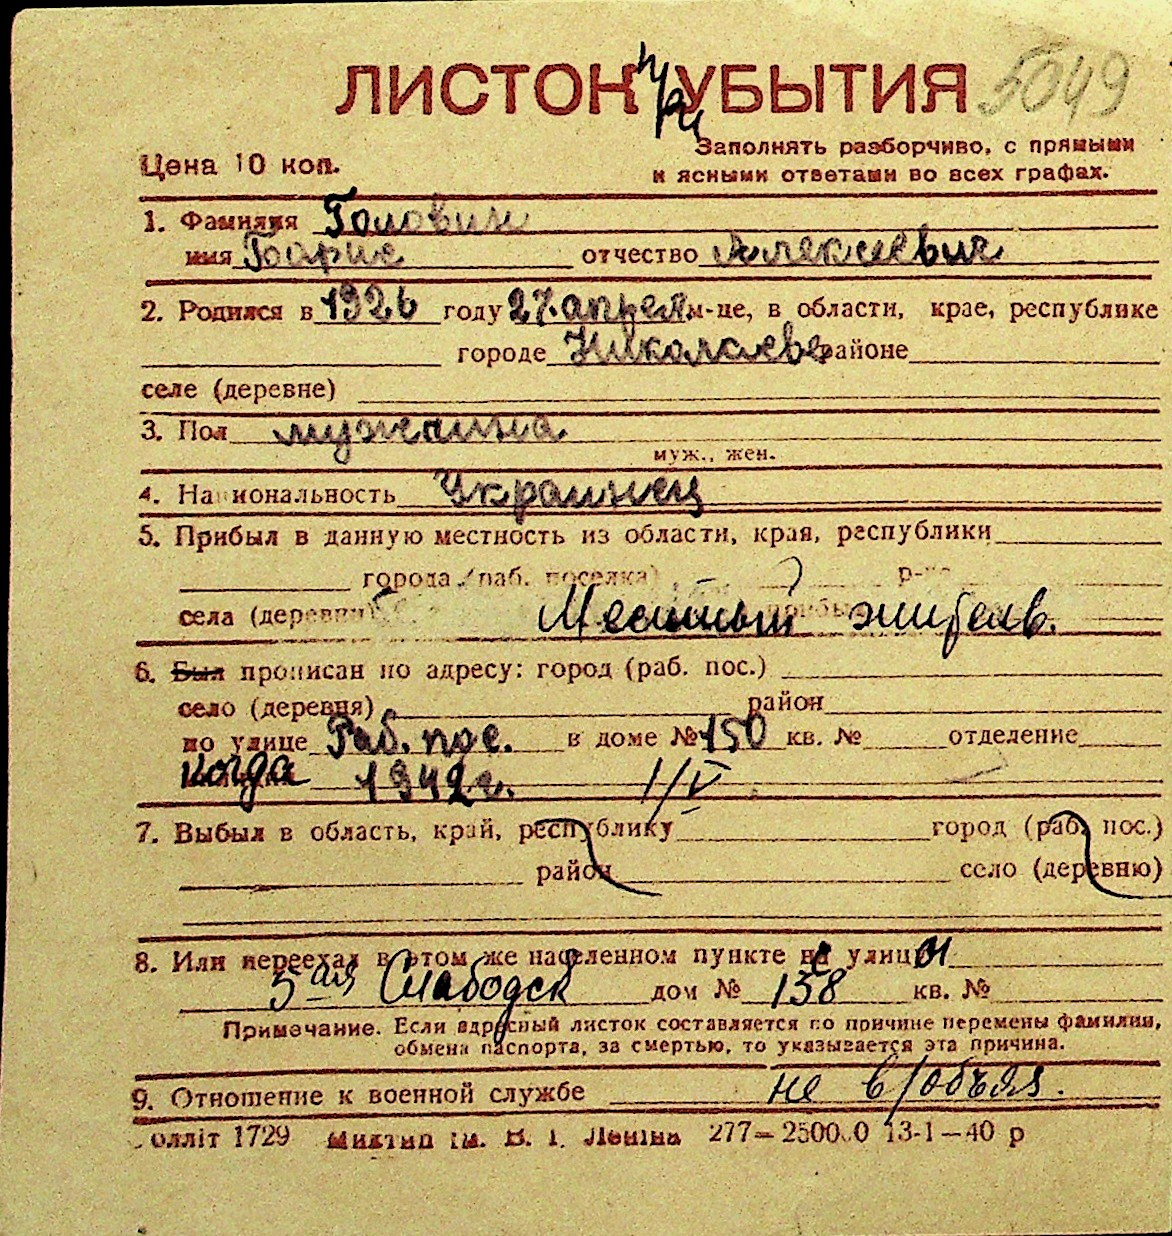 ЛИСТОК при УБЫТИЯ 5049
Заполнять разборчиво, с прямыми
Цена 10 коп. и ясными ответами во всех графах.
1. Фамилия Головин
имя Борис отчество Алексеевич
2. Родился в 1926 году 27. апреля м-це, в области, крае, республике
городе Николаеве районе
селе (деревне)
3. Пол мужчина
муж., жен.
4. Национальность Украинец
5. Прибыл в данную местность из области, края, республики
города (раб. поселка) р-на
села (деревни) Местный житель.
6. Был прописан по адресу: город (раб. пос.)
село (деревня) район
по улице Раб. пос. в доме № 150 кв. № отделение
когда 1942 г. 1/V
7. Выбыл в область, край, республику город (раб. пос.)
район село (деревню)
8. Или переехал в этом же населенном пункте с улицы
5ая Слободск дом № 138 кв. №
Примечание. Если адресный листок составляется по причине перемены фамилии,
обмена паспорта, за смертью, то указывается эта причина.
9. Отношение к военной службе не в/обяз.
олліт 1729 ім. В. І. Леніна 277— 13-1—40 р